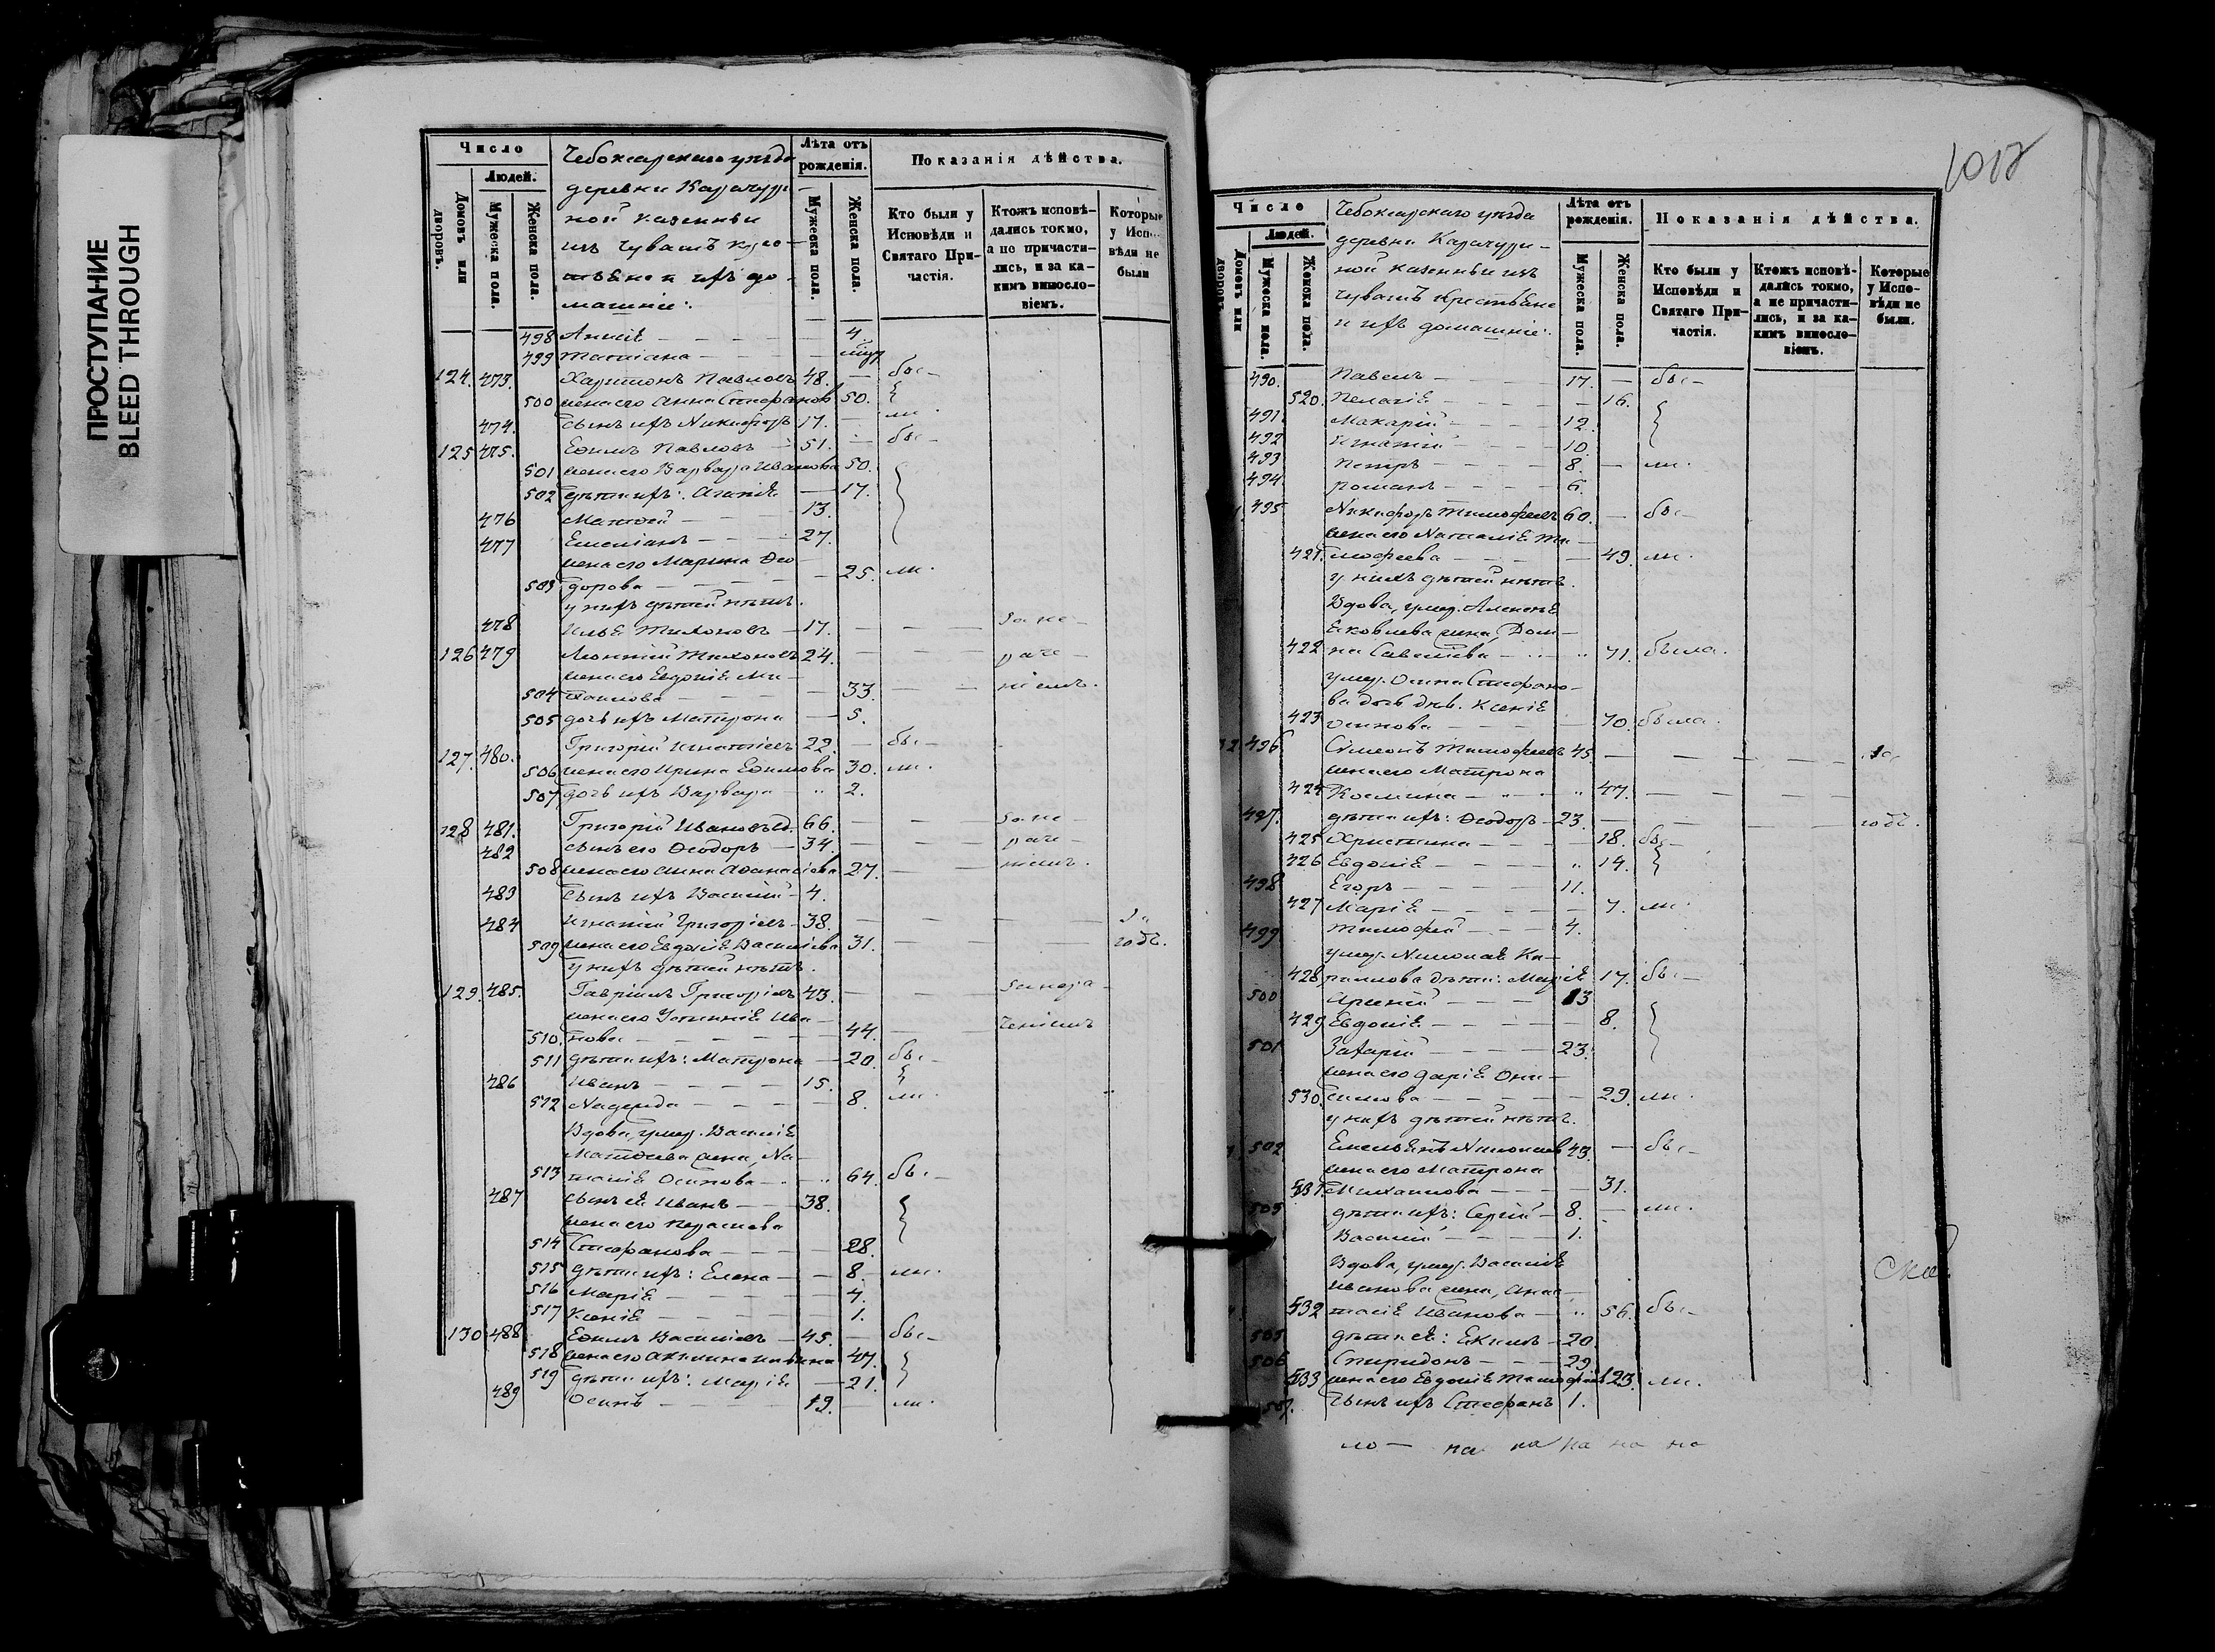 ПРОСТУПАНИЕ
BLEED THROUGH
Число
Людей.
Домовъ или дворовъ.
Мужеска пола.
Женска пола.
Чебоксарскаго уѣзда
деревни Карачури-
ной казенныи
изъ чувашъ крес-
тьяне и ихъ до-
машніе:
Лѣта отъ рожденія.
Мужеска пола.
Женска пола.
Показанія дѣйства.
Кто были у Исповѣди и Святаго Причастія.
Ктожъ исповѣдались токмо, а не причастились, и за какимъ винословіемъ.
Которые у Исповѣди не были
498 Аннія — 4.
499 Татіана —
124. 473. Харитонъ Павловъ 48. — бы-
500 жена его Анна Стефанов 50.
474. сынъ ихъ Никифоръ 17. ли.
125 475. Ефимъ Павловъ — 51. — бы-
501 жена его Варвара Иванова 50.
502 дѣти ихъ: Агапія — 17.
476 Матвей — 13.
477 Емеліанъ — 27.
жена его Марина Ѳео-
503 дорова — 25. ли.
у нихъ дѣтей нѣтъ.
478 Илья Тихоновъ — 17. — за не-
126 479 Леонтій Тихоновъ 24. — раче-
жена его Евдокія Ми-
504 хаилова — 33. — ніемъ.
505 дочь ихъ Матрона — 5.
127. 480. Григорій Игнатіевъ 22. — бы-
506 жена его Ирина Ефимова 30. ли.
507 дочь ихъ Варвара — " 2.
128 481. Григорій Ивановъ вд. 66. — за не-
482 сынъ его Ѳеодоръ — 34. — раче-
508 жена его Анна Афанасіева 27. — ніемъ.
483 сынъ ихъ Василій — 4.
484 Игнатій Григоріевъ — 38. — за
509 жена его Евдокія Василіева 31. — годъ.
у нихъ дѣтей нѣтъ.
129. 485. Гавріилъ Григоріевъ 43. — занера-
жена его Устинія Ива-
510. нова — 44. — ченіемъ
511 дѣти ихъ: Матрона — 20. бы-
486 Иванъ — 15.
512 Надежда — 8. ли.
Вдова, умер. Василія
Матвеева жена, На-
513 талія Осипова — " 64. бы-
487 сынъ ея Иванъ — 38.
жена его Парасковья
514 Стефанова — 28.
515 дѣти ихъ: Елена — 8. ли.
516 Марія — 4.
517 Ксенія — 1.
130 488 Ефимъ Василіевъ — 45. — бы-
518 жена его Акилина 47.
519 дѣти ихъ: Марія — 21.
489 Осипъ — 19. — ли.
1012
Число
Людей.
Домовъ или дворовъ.
Мужеска пола.
Женска пола.
Чебоксарскаго уѣзда
деревни Карачури-
ной казенныи изъ
чувашъ крестьяне
и ихъ домашніе:
Лѣта отъ рожденія.
Мужеска пола.
Женска пола.
Показанія дѣйства.
Кто были у Исповѣди и Святаго Причастія.
Ктожъ исповѣдались токмо, а не причастились, и за какимъ винословіемъ.
Которые у Исповѣди не были.
490. Павелъ — 17. — бы-
520. Пелагія — 16.
491 Макарій — 12.
492 Игнатій — 10.
493 Петръ — 8. — ли.
494 Романъ — 6.
495 Никифоръ Тимофеевъ 60. — бы-
жена его Наталія Ти-
421. мофеева — 49. ли.
у нихъ дѣтей нѣтъ.
Вдова, умер. Алексея
Яковлева жена, Дом-
422 на Савеліева — " 71. была.
умер. Осипа Стефано-
ва дочь дѣв. Ксенія
423 Осипова — 70. была.
496 Симеонъ Тимофеевъ 45 — за
жена его Матрона
424 Космина — " 47. —
497. дѣти ихъ: Ѳеодоръ — 23. — годъ.
425 Христина — 18. бы-
426 Евдокія — " 14.
498 Егоръ — 11.
427 Марія — 7. ли.
499 Тимофей — 4.
умер. Николая Ка-
428 рпилова дѣти: Марія 17. бы-
500 Арсеній — 13
429 Евдокія — 8.
501 Захарій — 23.
жена его Дарія Они-
530. симова — 29. ли.
у нихъ дѣтей нѣтъ.
502 Емельянъ Николаевъ 43. — бы-
жена его Матрона
531. Михаилова — 31.
503 дѣти ихъ: Сергій — 8. — ли.
Василій — 1.
Вдова, умер. Василія
Иванова жена, Анас-
532 тасія Иванова — " 56. бы-
505 дѣти ея: Екимъ — 20
506 Спиридонъ — 29
533 жена его Евдокія 23. ли.
507. сынъ ихъ Стефанъ 1.
ло — на на на на на